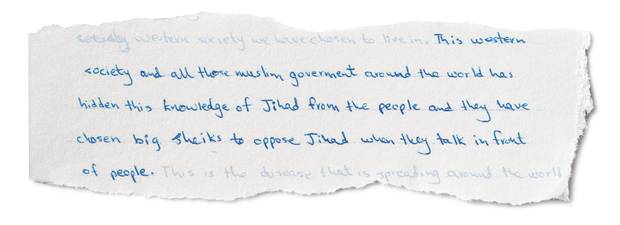 society western society we have chosen to live in. This western
society and all those muslim goverment around the world has
hidden this knowledge of Jihad from the people and they have
chosen big sheiks to oppose Jihad when they talk in front
of people. This is the disease that is spreading around the world